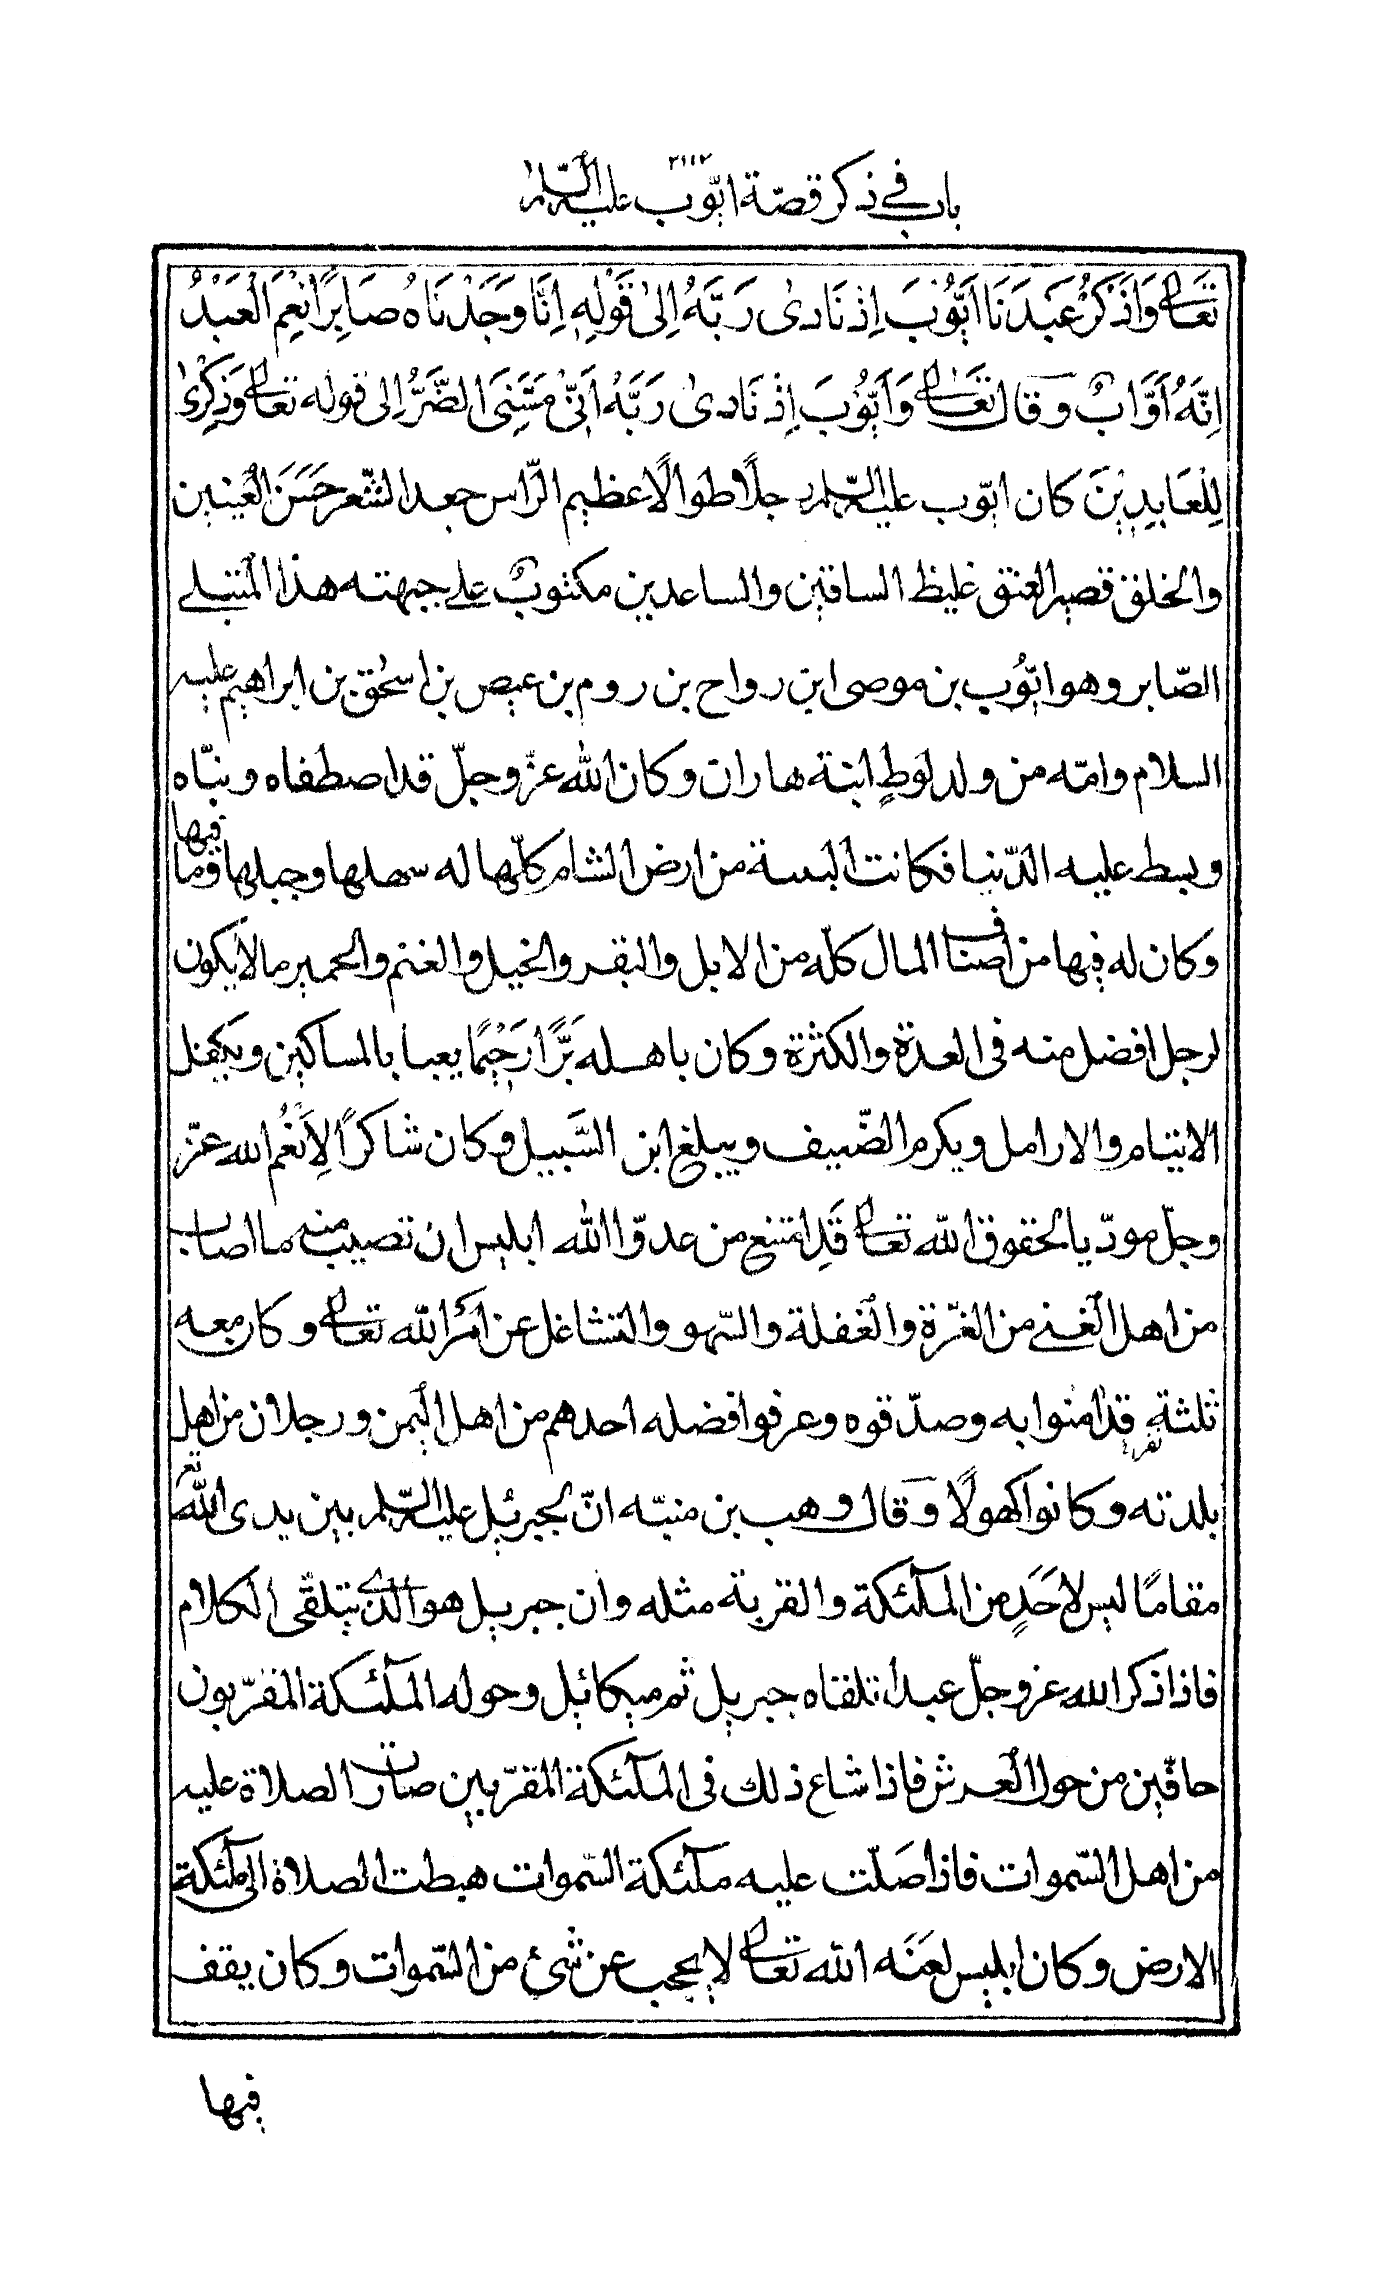 ٢١١٢
باب في ذكر قصّة ايّوب عليه السّلام
تَعَالى وَاذْكُرْ عَبْدَنَا اَيُّوْبَ اِذْ نَادىٰ رَبَّهُ اِلىٰ قَوْلِهِ اِنَّا وَجَدْنَاهُ صَابِرًا نِعْمَ الْعَبْدُ
اِنَّهُ اَوَّابٌ وقال تَعَالى وَاَيُّوْبَ اِذْ نَادىٰ رَبَّهُ اَنِّىْ مَسَّنِىَ الضُّرُّ اِلى قوله تعالى وَذِكْرىٰ
لِلْعَابِدِيْنَ كان ايّوب عليه السّلم رجلًا طوالًا عظيم الرّاس جعد الشّعر حَسَنَ الْعينين
والخلق قصير العنق غليظ الساقين والساعدين مكتوبٌ على جبهته هذا المبتلى
الصّابر وهو ايّوب بن موصى ابن رواح بن روم بن عيص بن اسحٰق بن ابراهيم عليه
السلام وامّه من ولد لوطٍ ابنة هاران وكان الله عزّ وجلّ قد اصطفاه ونبّاه
وبسط عليه الدّنيا فكانت له البسة من ارض الشام كلّها له سهلها وجبلها وما فيها
وكان له فيها من اصناف المال كلّه من الابل والبقر والخيل والغنم والحمير ما لا يكون
لرجل افضل منه فى العدة والكثرة وكان باهله بَرًّا رَحِيْمًا يعبا بالمساكين ويكفل
الايتام والارامل ويكرم الضّيف ويبلغ ابن السَّبيل وكان شاكرًا لِاَنْعُم الله عزّ
وجلّ موديا لحقوق الله تعالى قَدِ امتنع من عدوّ الله ابليس ان تصيب منه ما اصاب
من اهل الغنى من الغرّة والغفلة والسّهو والتشاغل عن اَمْرِ الله تعالى وكان معه
ثلثة نفر قد اٰمنوا به وصدّقوه وعرفوا فضله احدهم من اهل اليمن ورجلان من اهل
بلدته وكانوا كهولًا وقال وهب بن منبّه انّ لجبرئيل عليه السّلم بين يدى الله تع
مقامًا ليس لِاَحَدٍ من الملٰئكة والقربة مثله وان جبريل هو الذى يتلقّى الكلام
فاذا ذكر الله عز وجلّ عبدا تلقاه جبريل ثم ميكائيل وحوله الملٰئكة المقرّبون
حافّين من حول العرش فاذا شاع ذلك فى الملٰئكة المقرّبين صارت الصلاة عليه
من اهل السّموات فاذا صَلّت عليه ملٰئكة السّموات هبطت الصلاة الى ملٰئكة
الارض وكان ابليس لَعَنَه الله تعالى لا يحجب عن شئ من السّموات وكان يقف
فيها